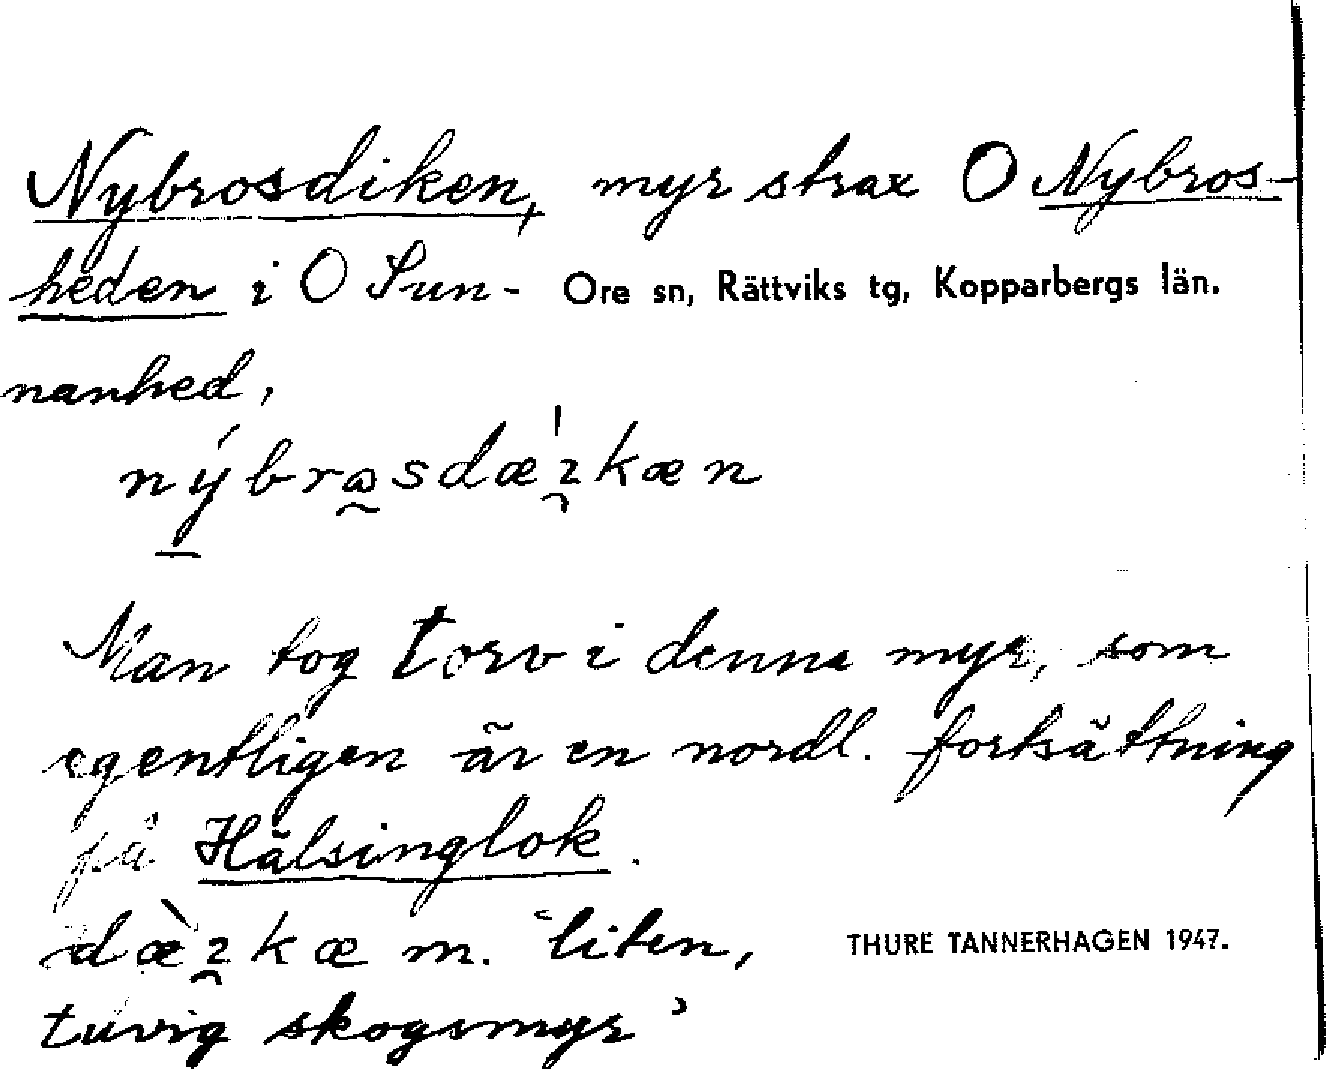 Nybrosdiken, myr strax O Nybros-
heden i O Sun- Ore sn, Rättviks tg, Kopparbergs län.
nanhed,
nýbrωsdæ'ızkæn
Man tog torv i denna myr, som
egentligen är en nordl. fortsättning
på Hälsinglok.
m. ‘liten, THURE TANNERHAGEN 1947.
tuvig skogsmyr’